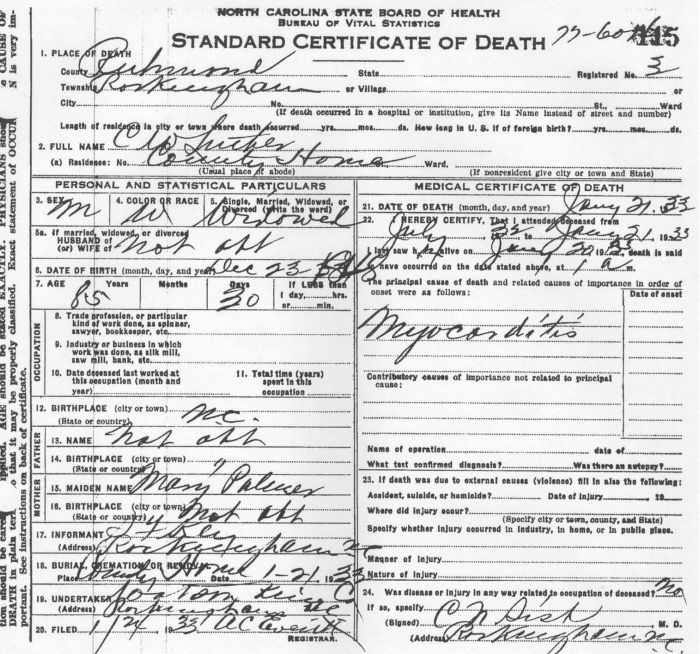 NORTH CAROLINA STATE BOARD OF HEALTH
BUREAU OF VITAL STATISTICS
STANDARD CERTIFICATE OF DEATH
115
1. PLACE OF DEATH
County Richmond State Registered No. 3
Township Rockingham or Village or
City No. St., Ward
(If death occurred in a hospital or institution, give its Name instead of street and number)
Length of residence in city or town where death occurred yrs. mos. ds. How long in U. S. if of foreign birth? yrs. mos. ds.
2. FULL NAME C W
(a) Residence: No. County Home Ward.
(Usual place of abode) (If nonresident give city or town and State)
PERSONAL AND STATISTICAL PARTICULARS
3. SEX M 4. COLOR OR RACE W 5. Single, Married, Widowed, or Divorced (write the word) Widowed
5a. If married, widowed, or divorced
HUSBAND of
(or) WIFE of Not obt
6. DATE OF BIRTH (month, day, and year) Dec 23
7. AGE 85 Years Months Days 30 If LESS than
1 day, hrs.
or min.
OCCUPATION
8. Trade profession, or particular
kind of work done, as spinner,
sawyer, bookkeeper, etc.
9. Industry or business in which
work was done, as silk mill,
saw mill, bank, etc.
10. Date deceased last worked at
this occupation (month and
year)
11. Total time (years)
spent in this
occupation
12. BIRTHPLACE (city or town) N.C.
(State or country)
FATHER
13. NAME Not obt
14. BIRTHPLACE (city or town) "
(State or country)
MOTHER
15. MAIDEN NAME Mary Palmer
16. BIRTHPLACE (city or town)
(State or country) Not obt
17. INFORMANT
(Address) Rockingham N C
18. BURIAL, CREMATION OR REMOVAL
Place County Home Date 1-21 1933
19. UNDERTAKER
(Address) Rockingham NC
20. FILED 1/24, 1933 A C Everett
REGISTRAR.
MEDICAL CERTIFICATE OF DEATH
21. DATE OF DEATH (month, day, and year) Jany 21. 33
22. I HEREBY CERTIFY, That I attended deceased from
July 32 to Jany 21 1933
I last saw h alive on Jany 20 1933 death is said
to have occurred on the date stated above, at 1 a m.
The principal cause of death and related causes of importance in order of
onset were as follows:
Date of onset
Myocarditis
Contributory causes of importance not related to principal
cause:
Name of operation date of
What test confirmed diagnosis? Was there an autopsy?
23. If death was due to external causes (violence) fill in also the following:
Accident, suicide, or homicide? Date of injury 19
Where did injury occur?
(Specify city or town, county, and State)
Specify whether injury occurred in industry, in home, or in public place.
Manner of injury
Nature of injury
24. Was disease or injury in any way related to occupation of deceased? No
If so, specify
(Signed) C N Sisk M. D.
(Address) Rockingham N.C.